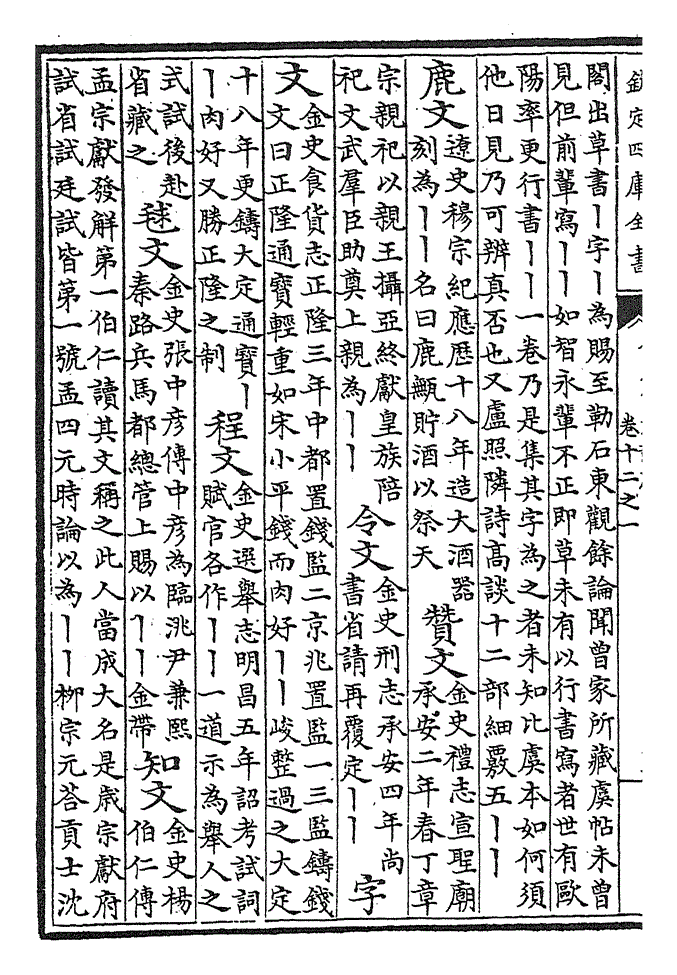 欽定四庫全書
卷十二之一
閣出草書丨字丨為賜至勒石東觀餘論聞曾家所藏虞帖未曾
見但前輩寫丨丨如智永輩不正即草未有以行書寫者世有歐
陽率更行書丨丨一卷乃是集其字為之者未知比虞本如何須
他日見乃可辨真否也又盧照隣詩高談十二部細覈五丨丨
鹿文
遼史穆宗紀應歷十八年造大酒器
刻為丨丨名曰鹿甒貯酒以祭天
贊文
金史禮志宣聖廟
承安二年春丁章
宗親祀以親王攝亞終獻皇族陪
祀文武羣臣助奠上親為丨丨
令文
金史刑志承安四年尚
書省請再覆定丨丨
字
文
金史食貨志正隆三年中都置錢監二京兆置監一三監鑄錢
文曰正隆通寶輕重如宋小平錢而肉好丨丨峻整過之大定
十八年更鑄大定通寶丨
丨肉好又勝正隆之制
程文
金史選舉志明昌五年詔考試詞
賦官各作丨丨一道示為舉人之
式試後赴
省藏之
毬文
金史張中彦傳中彦為臨洮尹兼熙
秦路兵馬都總管上賜以丨丨金帶
知文
金史楊
伯仁傳
孟宗獻發解第一伯仁讀其文稱之此人當成大名是歳宗獻府
試省試廷試皆第一號孟四元時論以為丨丨柳宗元荅貢士沈